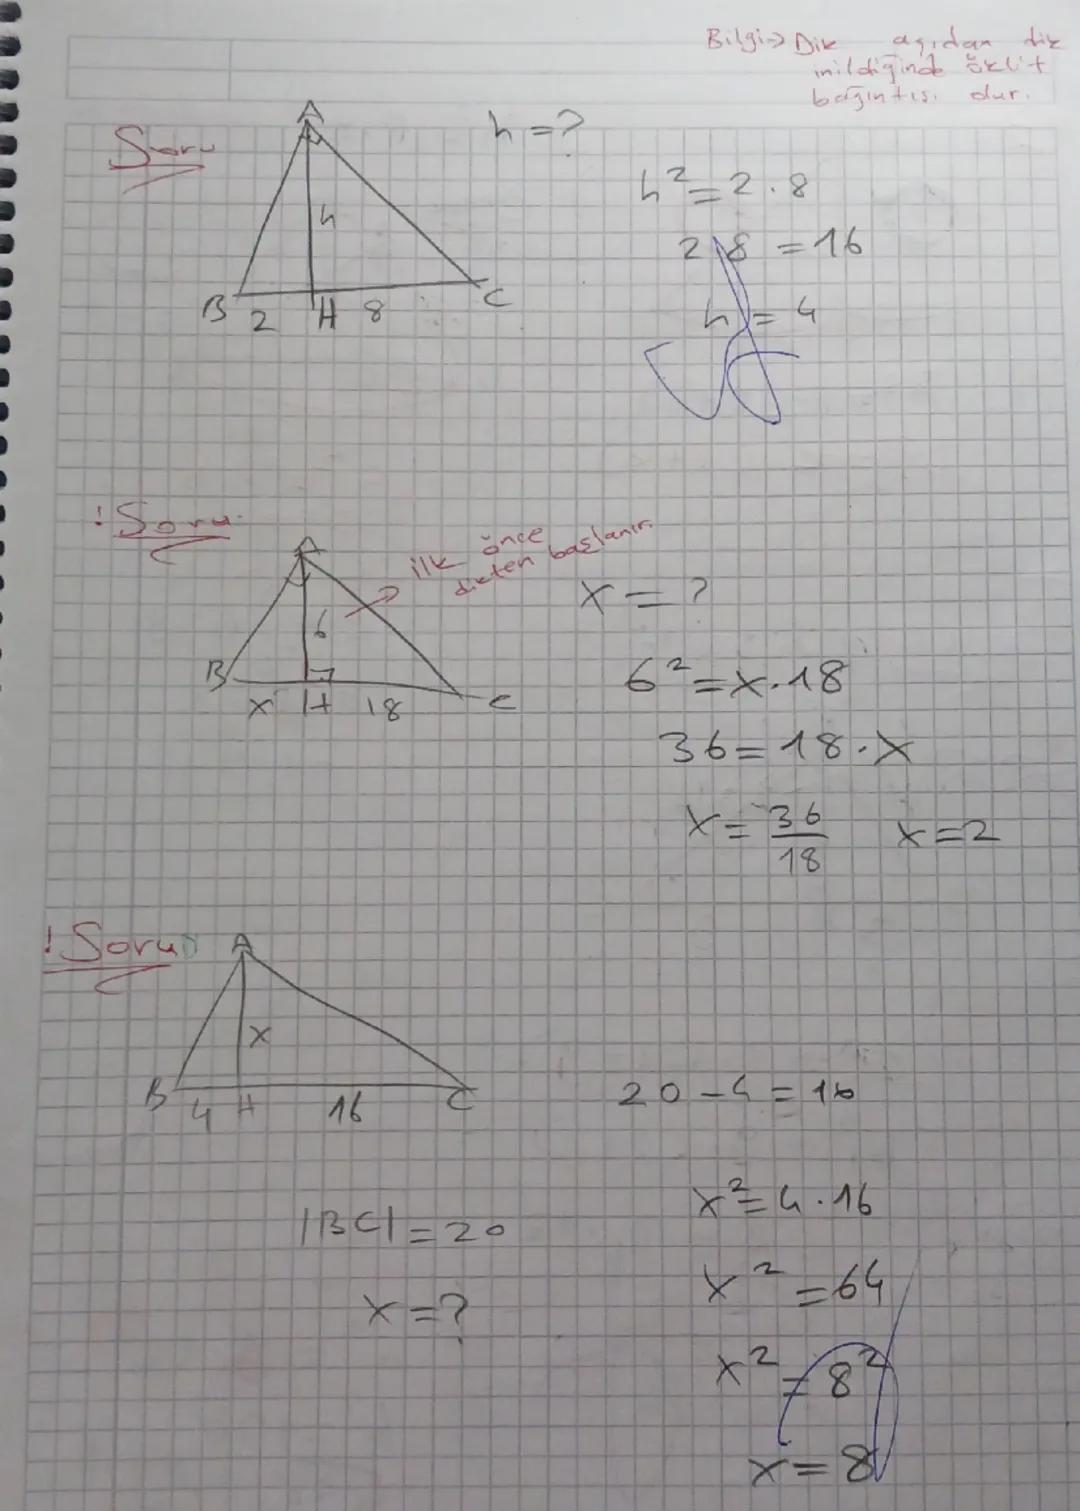 Bilgi→ Dik açıdan dik
inildiğinde öklit
bağıntısı dur.
Soru
A
h = ?
h
B 2 H 8 C
h² = 2 . 8
2 . 8 = 16
h = 4
! Soru
A
ilk önce
dikten başlanır.
6
B x H 18 C
x = ?
6² = x . 18
36 = 18 . x
x = 36/18 x = 2
! Soru
A
x
B 4 H 16 C
20 - 4 = 16
|BC| = 20
x = ?
x² = 4 . 16
x² = 64
x² = 8²
x = 8